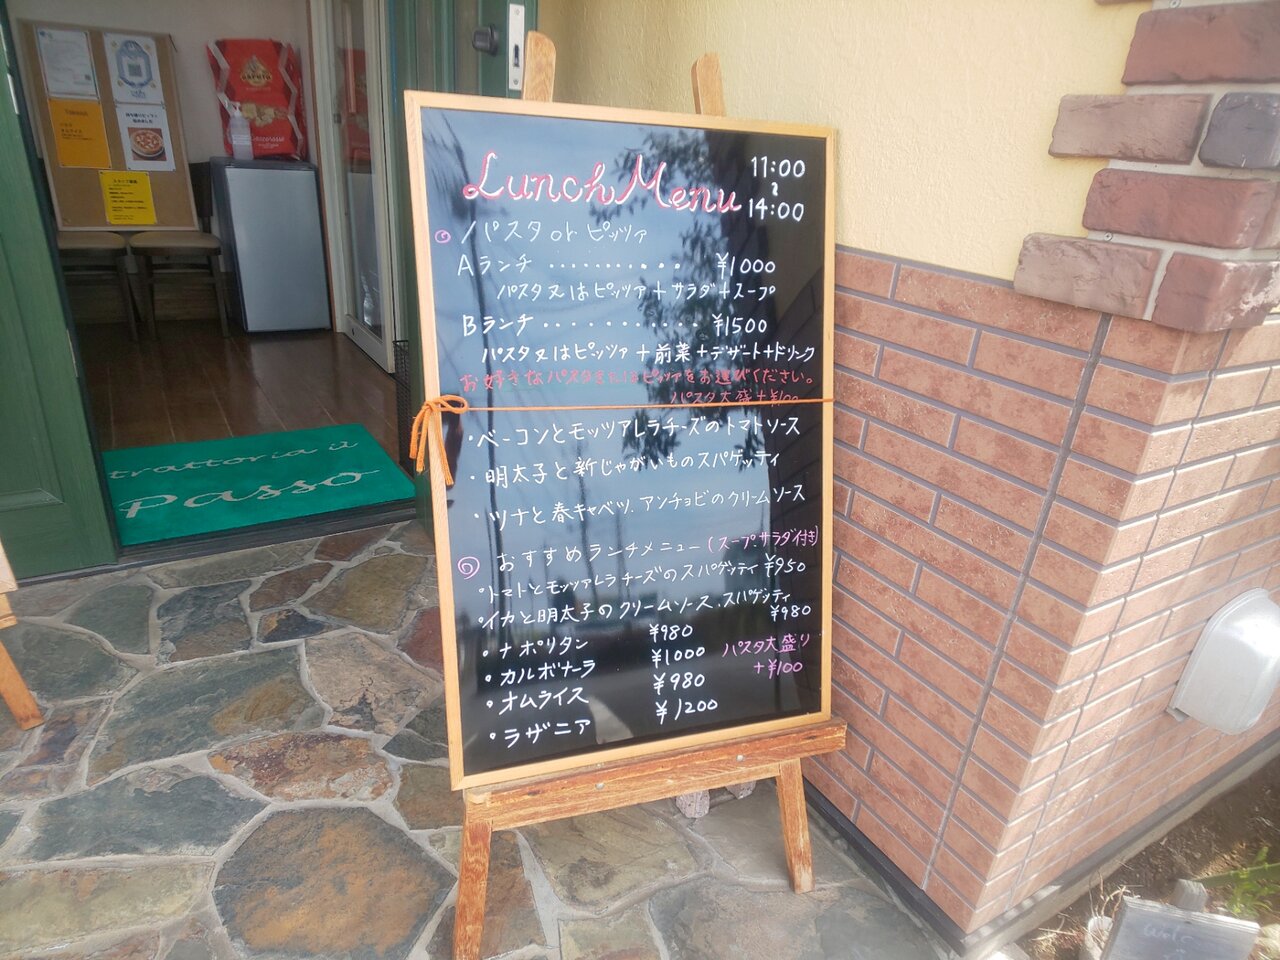 Lunch Menu
11:00
〜
14:00
パスタ or ピッツァ
Aランチ ・・・・・・・・・・ ¥1000
パスタ又はピッツァ+サラダ+スープ
Bランチ ・・・・・・・・・・・ ¥1500
パスタ又はピッツァ+前菜+デザート+ドリンク
お好きなパスタ又はピッツァをお選びください。
パスタ大盛+¥100
・ベーコンとモッツアレラチーズのトマトソース
・明太子と新じゃがいものスパゲッティ
・ツナと春キャベツ.アンチョビのクリームソース
おすすめランチメニュー(スープ.サラダ付き)
・トマトとモッツアレラチーズのスパゲッティ ¥950
・イカと明太子のクリームソース.スパゲッティ
¥980
・ナポリタン ¥980
・カルボナーラ ¥1000
・オムライス ¥980
・ラザニア ¥1200
パスタ大盛り
+¥100
trattoria il
passo